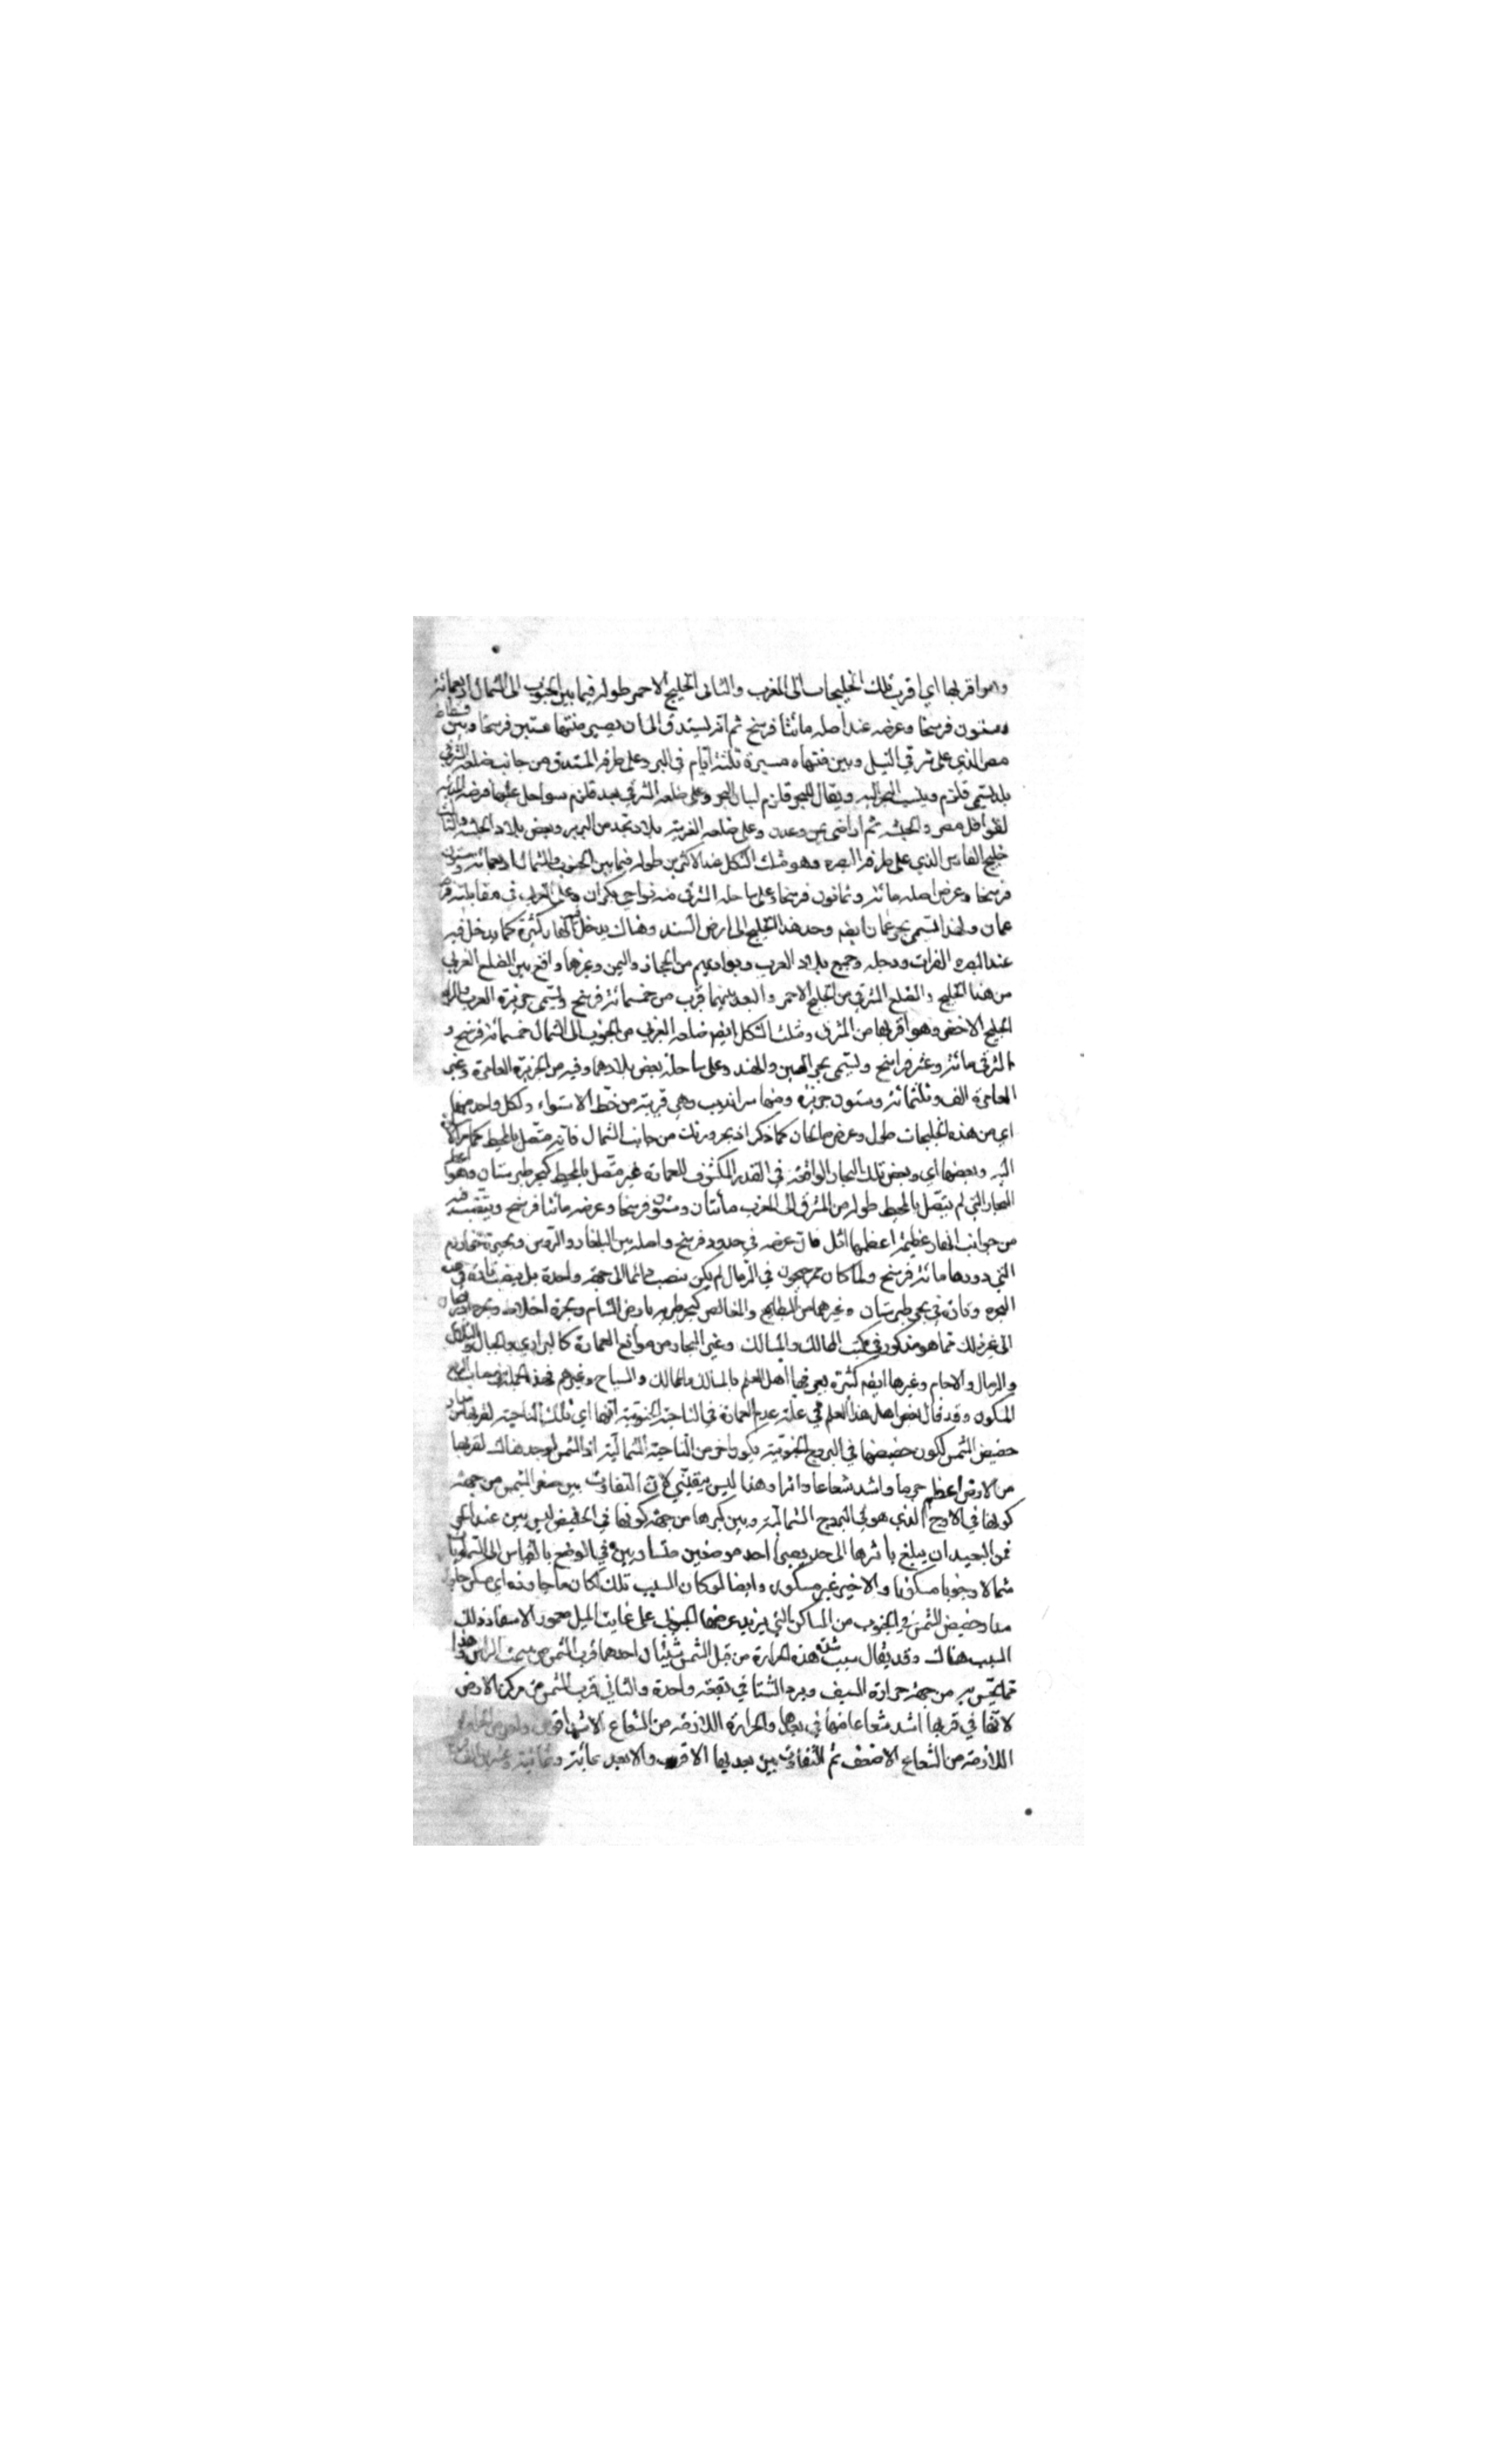 وهو اقربها اي اقرب تلك الخليجات الى المغرب والثاني الخليج الاحمر طوله فيما بين الجنوب الى الشمال اربعمائة
وستون فرسخا وعرضه عند اصله مائتا فرسخ ثم انه يستدق الى ان يصير منتهاه ستين فرسخا وبين فسطاط
مصر الذي على شرقي النيل وبين منتهاه مسيرة ثلثة ايام في البر وعلى طرفه المستدق من جانب ضلعه الشرقي
بلد يسمى قلزم وينسب البحر اليه ويقال للبحر قلزم لسان البحر وعلى ضلعه الشرقي بعد قلزم سواحل عليها فرضة
لقوافل مصر والحبشة ثم اراضي يمن وعدن وعلى ضلعه الغربي بلاد تجد من البربر وبعض بلاد الحبشة والثالث
خليج الفارس الذي على طرفه البصرة وهو مثلث الشكل عند الاكثرين طوله فيما بين الجنوب والشمال اربعمائة وستون
فرسخا وعرض اصله مائة وثمانون فرسخا وعلى ساحله الشرقي منه نواحي مكران وعلى الغربي في مقابلته
عمان ولهذا يسمى بحر عمان ايضا وحد هذا الخليج الى ارض السند وهناك يدخل انهار كثيرة كما يدخل فيه
عند البصرة الفرات ودجلة وجميع بلاد العرب وبواديهم من الحجاز واليمن وغيرها واقع بين الضلع الغربي
من هذا الخليج والضلع الشرقي من الخليج الاحمر والبعد بينهما قرب من خمسمائة فرسخ ويسمى جزيرة العرب والرابع
الخليج الاخضر وهو اقربها من المشرق ومثلث الشكل ايضا ضلعه الغربي من الجنوب الى الشمال خمسمائة فرسخ و
الشرقي مائة وعشر فراسخ ويسمى بحر الصين والهند وعلى ساحله بعض بلادهما وفيه من الجزيرة العامرة وغير
العامرة الف وثلثمائة وستون جزيرة ومنها سرانديب وهي قريبة من خط الاستواء ولكل واحد منها
اي من هذه الخليجات طول وعرض صالحان كما ذكر اذ بحر ورنك من جانب الشمال فانه متصل بالمحيط كما مر
اليه وبعضها اي وبعض تلك البحار الواقعة في القدر المكشوف للعمارة غير متصل بالمحيط كبحر طبرستان وهو اعظم
البحار التي لم يتصل بالمحيط طوله من المشرق الى المغرب مائتان وستون فرسخا وعرضه مائتا فرسخ وينصب فيه
من جوانب انهار عظيمة اعظمها اتل فان عرضه في حدود فرسخ واصله بين البلغار والروس وبحيرة خوارزم
التي دورها مائة فرسخ ولما كان نهر جيحون في الرمال لم يكن ينصب دائما الى جهة واحدة بل ينصب تارة في هذه
البحيرة وتارة في بحر طبرستان وغيرهما من البطايح والمغائص كبحر طبرية بارض الشام وبحيرة اخلاط
الى غير ذلك مما هو مذكور في كتب الممالك والمسالك وغير البحار من موانع العمارة كالبراري والجبال والتلال
والرمال والاجام وغيرها ايضا كثيرة يعرفها اهل العلم بالمسالك والممالك والسياح وغيرهم
المسكون وقد قال بعض اهل هذا العلم في علة عدم العمارة في الناحية الجنوبية انها اي تلك الناحية لقربها من
حضيض الشمس لكون حضيضها في البروج الجنوبية يكون احر من الناحية الشمالية اذ الشمس توجد هناك لقربها
من الارض اعظم جرما واشد شعاعا واثرا وهذا ليس بيقيني لان التفاوت بين صغر الشمس من جهة
كونها في الاوج الذي هو في البروج الشمالية وبين كبرها من جهة كونها في الحضيض ليس ببين عند الحس
فمن البعيد ان يبلغ تأثيرها الى حد يصير احد موضعين متساويين في الوضع بالقياس الى الشمس
شمالا وجنوبا مسكونا والاخر غير مسكون وايضا لو كان السبب تلك لكان ما جاوزه اي مسكن جاوز
مدار حضيض الشمس في الجنوب من المساكن التي يزيد عرضها الجنوبي على غايت الميل معمورا لانتفاء ذلك
السبب هناك وقد يقال سبب شدة هذه الحرارة من قبل الشمس شيئان احدهما قرب الشمس من سمت الراس وهذا
مما يحس به من جهة حرارة الصيف وبرد الشتا في بقعة واحدة والثاني قرب الشمس من مركز الارض
لانها في قربها اشد شعاعا منها في بعدها والحرارة اللازمة من الشعاع الاشد اقوى من الحرارة
اللازمة من الشعاع الاضعف ثم التفاوت بين بعديها الاقرب والابعد